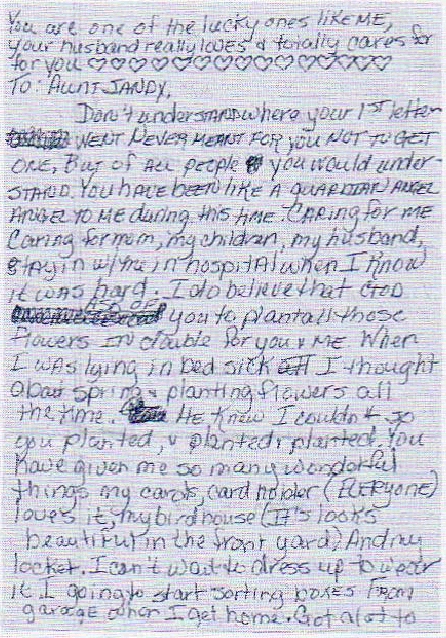 You are one of the lucky ones like ME,
your husband really loves & totally cares for
for you ♡♡♡♡♡♡♡♡♡♡♡♡♡♡
To: AUNT JANDY,
Don't understand where your 1st letter
WENT NEVER MEANT FOR you NOT TO GET
ONE, But of ALL people you would under-
STAND. You HAVE BEEN LIKE A GUARDIAN ANGEL
ANGEL TO ME during this time. CARing for ME
Caring for mom, my children, my husband,
stayin w/me in hospital when I know
it was hard. I do believe that GOD
you to plant all those
flowers IN double for you & ME When
I was lying in bed sick I thought
about spring & planting flowers all
the time. He Knew I couldn't so
you planted, & planted & planted. You
have given me so many wonderful
things my cards, card holder (EVERyone)
loves it, my birdhouse (It's looks
beautiful in the front yard) And my
locket. I can't wait to dress up to wear
it I going to start sorting boxes From
garage when I get home. Got alot to